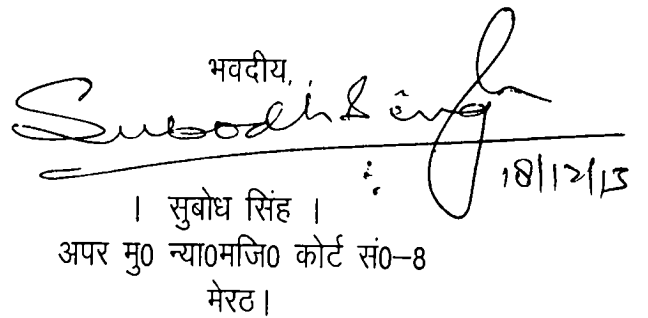 भवदीय,
Subodh Singh
18/12/13
। सुबोध सिंह ।
अपर मु0 न्या0मजि0 कोर्ट सं0–8
मेरठ।